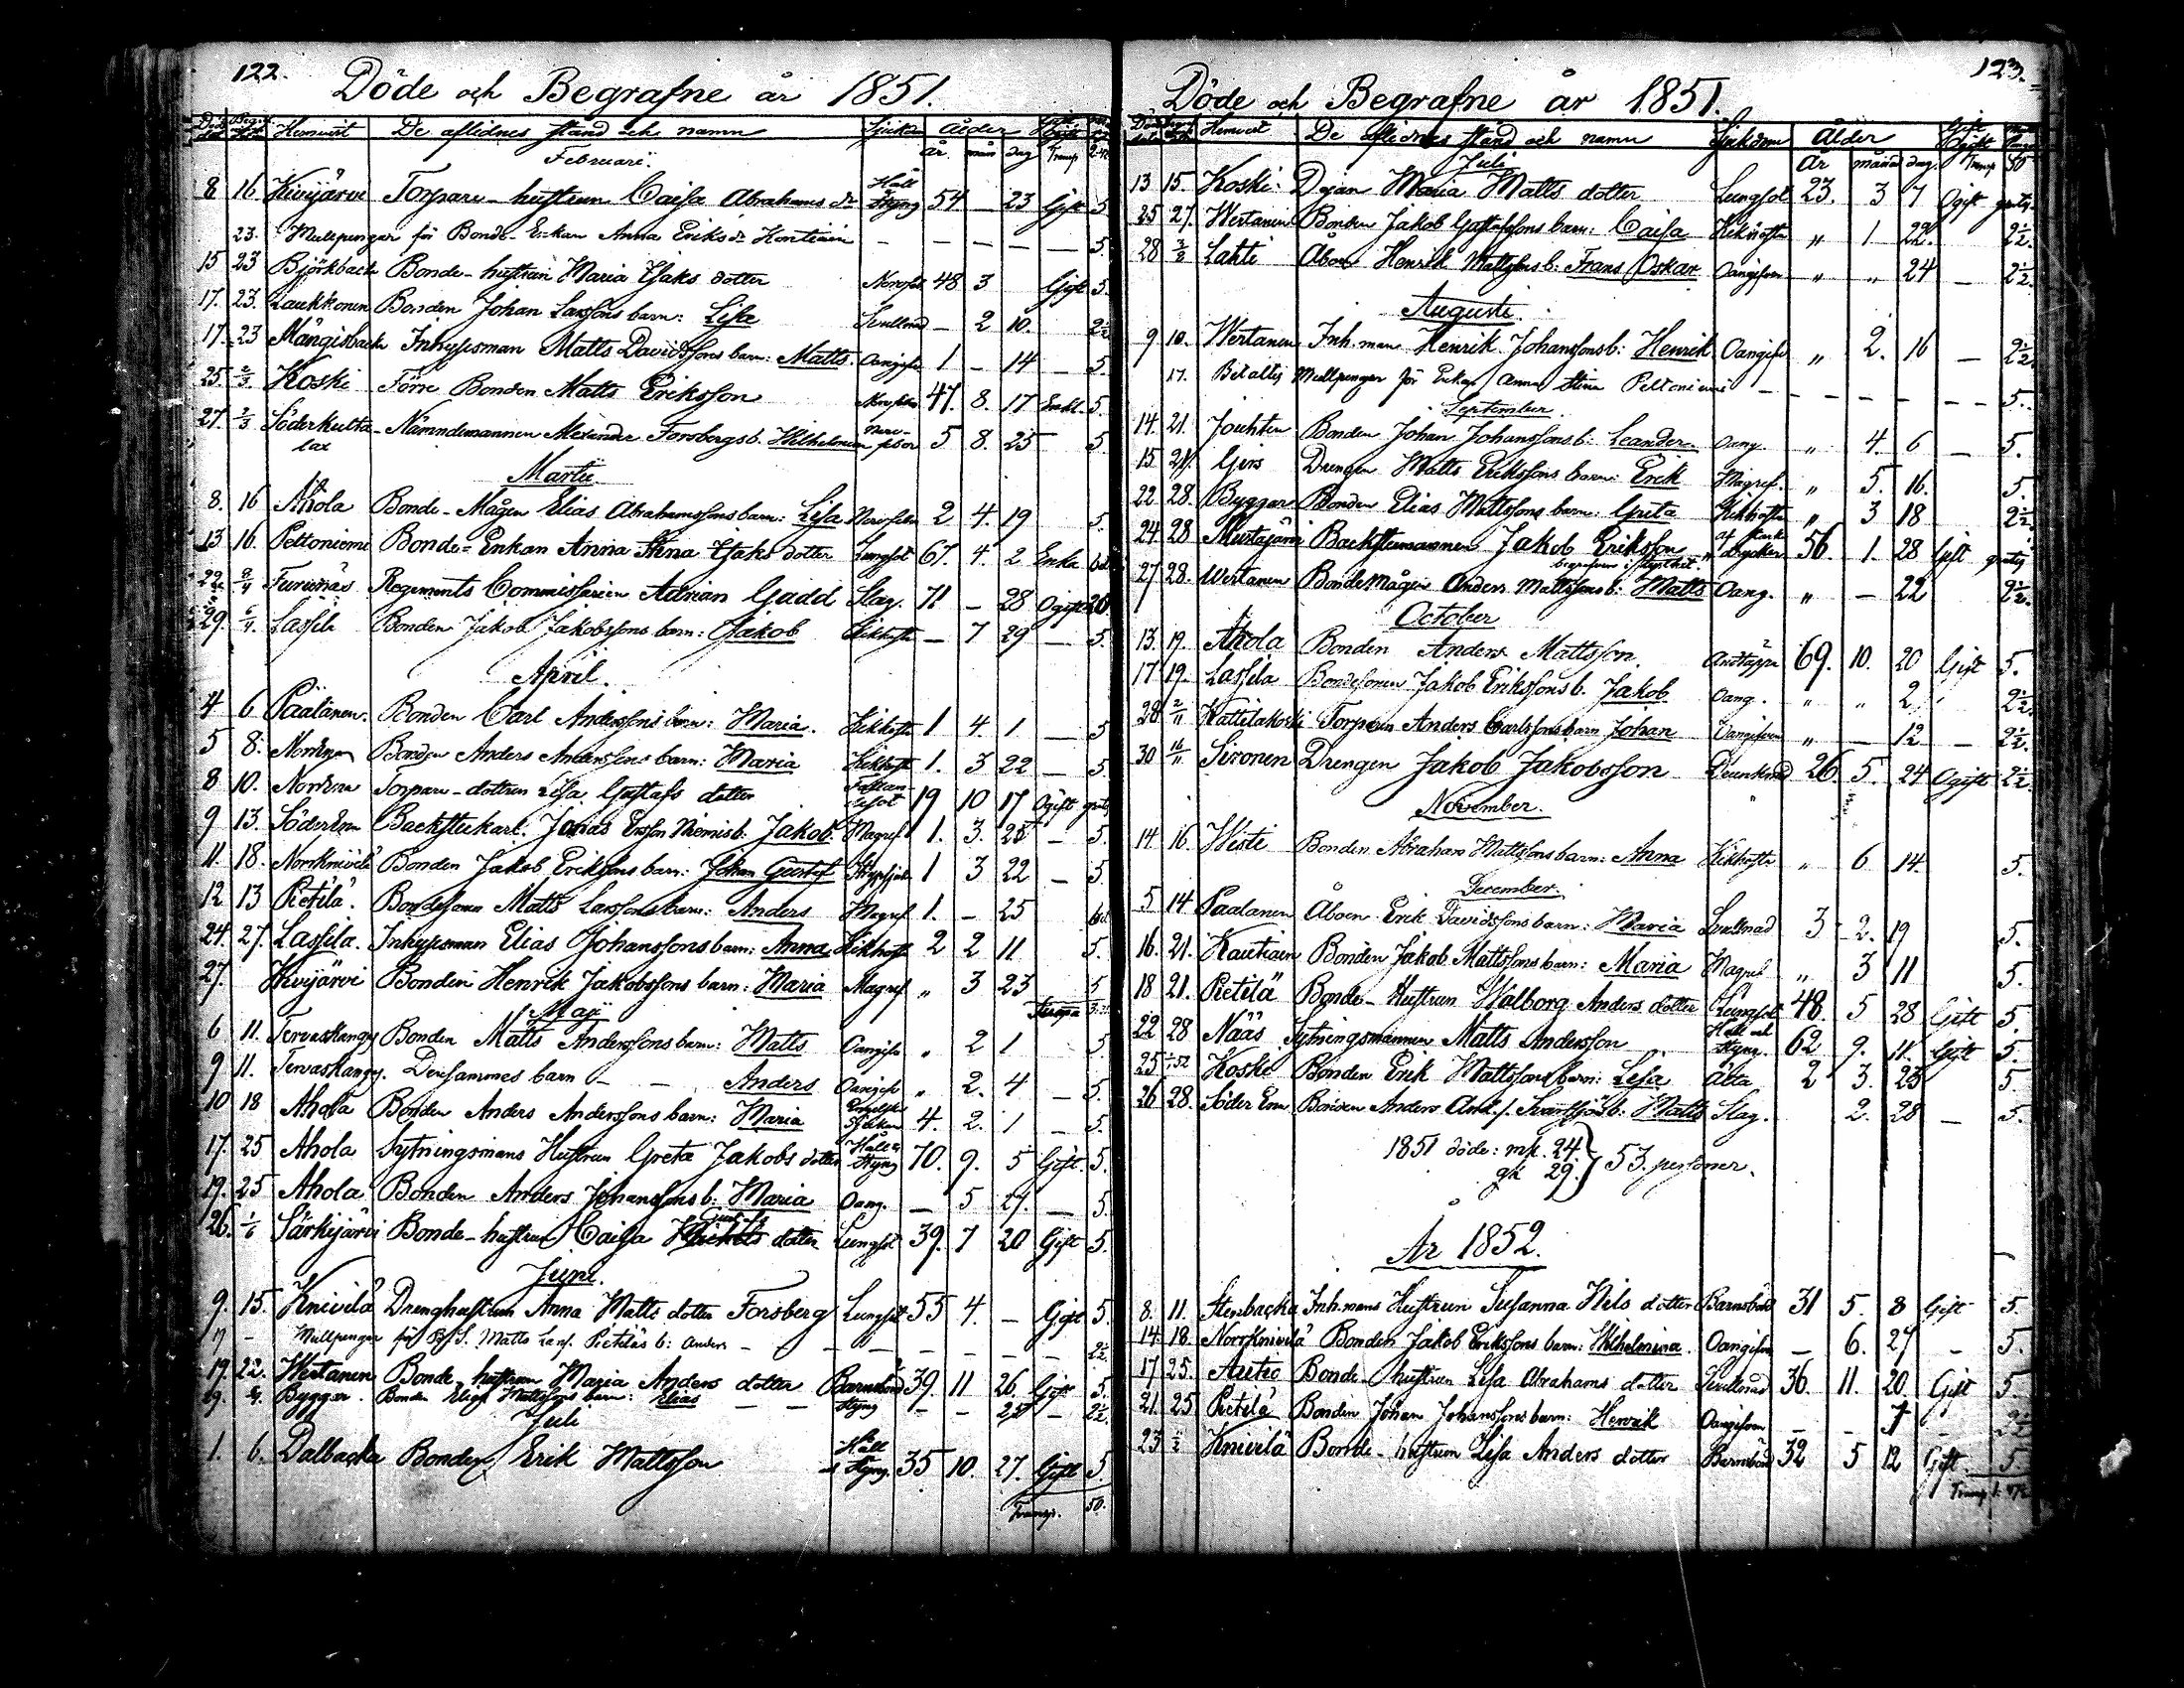 122.
Döde och Begrafne år 1851.
Hemvist De aflidnes stånd och namn Sjukdom Ålder Gift Ogift
År mån dag Transp
Februarii.
8 16 Kivijärvi Torpare-hustrun Caisa Abrahams dr Håll Styng 54 – 23 Gift 5
23. Mullpengar för Bonde-Enkan Anna Eriks dr – – – – 5.
15 23 Björkbacka Bonde-hustrun Maria Isaks dotter 48 3 Gift 5.
17. 23. Laukkonen Bonden Johan Larssons barn: Lisa Svullnad – 2 10. 2½
17. 23 Mångisbacka Inhysesman Matts Davidssons barn: Matts. Oangifn 1 – 14 – 5.
25 2/3 Koski Förre Bonden Matts Eriksson 47. 8. 17 Enkl. 5
27. 2/3 Söderkultalax Nämndemannen Alexander Forsbergs b. Wilhelmina 5 8. 25 5
Martii
8. 16 Ahola Bonde-Mågen Elias Abrahamssons barn: Lisa 2 4. 19 5.
13 16. Peltoniemi Bonde-Enkan Anna Stina Isaks dotter Lungsot 67. 4. 2 Enka
22 Furunäs Regements Commissarien Adrian Gadd Slag. 71 – 28 Ogift 20
29. 6/4 Lassila Bonden Jakob Jakobssons barn: Jakob Kikhosta – 7 29 – 5.
April.
4 6 Päätinen. Bonden Carl Anderssons barn: Maria. Kikhosta 1 4. 1 – 5
5 8. Bonden Anders Anderssons barn: Maria Kikhosta 1. 3 22 – 5
8 10. Torpare-dottren Lisa Gustafs dotter 19 10 17 Ogift gratis
9 13. Söder Backstukarl. Jonas Ersson Niemis b. Jakob. Magref 1. 3. 25 – 5.
11. 18. Norrknivilä Bonden Jakob Erikssons barn: Johan Gustaf 1 3 22 – 5.
12 13 Pietilä. Bondesonen Matts Larssons barn: Anders Magref 1. – 25
24. 27. Lassila. Inhysesman Elias Johanssons barn: Anna Kikhosta 2 2 11 5.
27. Kivijärvi Bonden Henrik Jakobssons barn: Maria Magref „ 3 23 5
Maji
6 11. Tervaskangas Bonden Matts Anderssons barn: Matts Oangifn „ 2 1 5.
9 11. Tervaskangas. Densammes barn – – Anders Oangifn „ 2. 4 – 5.
10 18 Ahola Bonden Anders Anderssons barn: Maria Engelska Sjukan 4. 2. 1 – 5.
17. 25 Ahola Sytningsmans Hustrun Greta Jakobs dotter Håll & Styng 70. 9. 5 Gift. 5.
19. 25 Ahola Bonden Anders Johanssons b: Maria Oang. – 5 – 5.
26. 1/6 Särkijärvi Bonde-hustrun Caisa dotter Lungsot 39. 7 20 Gift 5.
Junii.
9. 15. Knivilä Drenghustrun Anna Matts dotter Forsberg Lungsot 55 4. – Gift 5.
Mullpengar för Matts Lars. Pietiläs b: Anders – – – – – 2½
19. 22. Wertanen Bonde-hustrun Maria Anders dotter Barnsbörd 39. 11 26. Gift 5.
Byggar. Bonden Elias Mattssons barn: Elias – – Styng – – 25 – 2½.
Juli
1. 6. Dalbacka Bonden Erik Mattsson Håll & Styng. 35 10. 27. Gift 5
Transp. 50.
123.
Döde och Begrafne år 1851.
Hemvist De aflidnes stånd och namn Sjukdom Ålder Gift Ogift
År månad dag. Transp 50
Juli
13 15. Koski. Maria Matts dotter Lungsot 23. 3 7 Ogift gratis
25 27. Wertanen Bonden Jakob Gustafssons barn: Caisa Kikhosta „ 1 22. 2½.
28 Lahti Åboen Henrik Mattssons b: Frans Oskar Oangifven „ „ 24 – 2½.
Augusti.
9 10. Wertanen Inh. man Henrik Johanssons b: Henrik Oangifn „ 2. 16 – 2½.
17. Betaltes Mullpenger för Enkan Anna Stina Peltoniemi – – – – – – 5.
September.
14. 21. Jouhten Bonden Johan Johanssons b: Leander. Oang. „ 4. 6 – 5.
15 21. Gers Drengen Matts Erikssons barn: Erik Magref. „ 5. 16. 5.
22 28. Byggar Bonden Elias Mattssons barn: Greta Kikhosta „ 3 18 2½
24. 28 Backstumannen Jakob Eriksson 56. 1. 28 Gift gratis
27 28. Wertanen Bondemågen Anders Mattssons b: Matts Oang. „ – 22 2½.
October
13. 19. Ahola Bonden Anders Mattsson. Andtäppa 69. 10. 20 Gift 5.
17 19. Lassila Bondesonen Jakob Erikssons b. Jakob Oang. „ „ 2 2½.
28 2/11 Kattilakoski Torparen Anders Carlssons barn Johan Oangifven „ – 12 – 2½.
30 16/11 Sironen Drengen Jakob Jakobsson Drunknad 26. 5. 24 Ogift 2½.
November.
14 16. Wiste Bonden Abraham Mattssons barn: Anna Kikhosta „ 6 14. 5.
December.
5 14 Paalanen Åboen Erik Davidssons barn: Maria Svullnad 3 2. 19 5.
16. 21. Kautiain Bonden Jakob Mattssons barn: Maria Magref „ 3 11 5.
18 21. Pietilä Bonde-Hustrun Walborg Anders dotter Lungsot 48. 5 28 Gift 5.
22 28 Nääs Sytningsmannen Matts Andersson Håll och Styng. 62 9. 11. Gift 5.
25 Koski Bonden Erik Mattssons barn: Lisa Älta 2 3. 23 5.
26 28. Söder Bonden Anders And. s. Svartsjös b: Matts Slag. 2. 28 – 5.
1851 döde: mk. 24.
qk 29. } 53. personer.
År 1852.
8. 11. Stenbacka Inh.mans Hustrun Susanna Nils dotter Barnsbörd 31 5. 8 Gift 5.
14. 18. Norrknivilä Bonden Jakob Erikssons barn: Wilhelmina. Oangifven – 6. 27 – 5.
17 25. Autio Bonde-hustrun Lisa Abrahams dotter Svullnad 36. 11. 20. Gift 5
21. 25 Pietilä Bonden Johan Johanssons barn: Henrik Oangifven – – 7 – 2½
23 Knivilä Bonde-hustrun Lisa Anders dotter Barnsbörd 32 5 12 Gift 5.